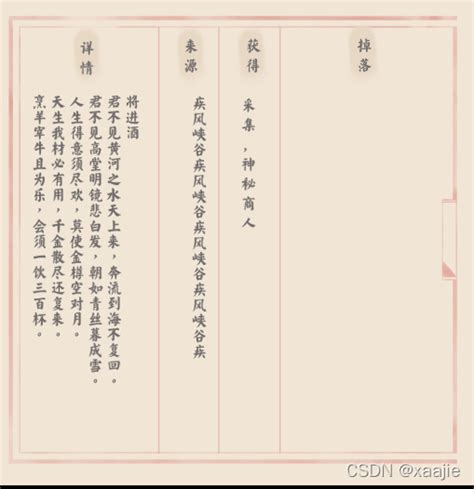 掉落
获得
采集，神秘商人
来源
疾风峡谷疾风峡谷疾风峡谷疾风峡谷疾
详情
将进酒
君不见黄河之水天上来，奔流到海不复回。
君不见高堂明镜悲白发，朝如青丝暮成雪。
人生得意须尽欢，莫使金樽空对月。
天生我材必有用，千金散尽还复来。
烹羊宰牛且为乐，会须一饮三百杯。
CSDN @xaajie